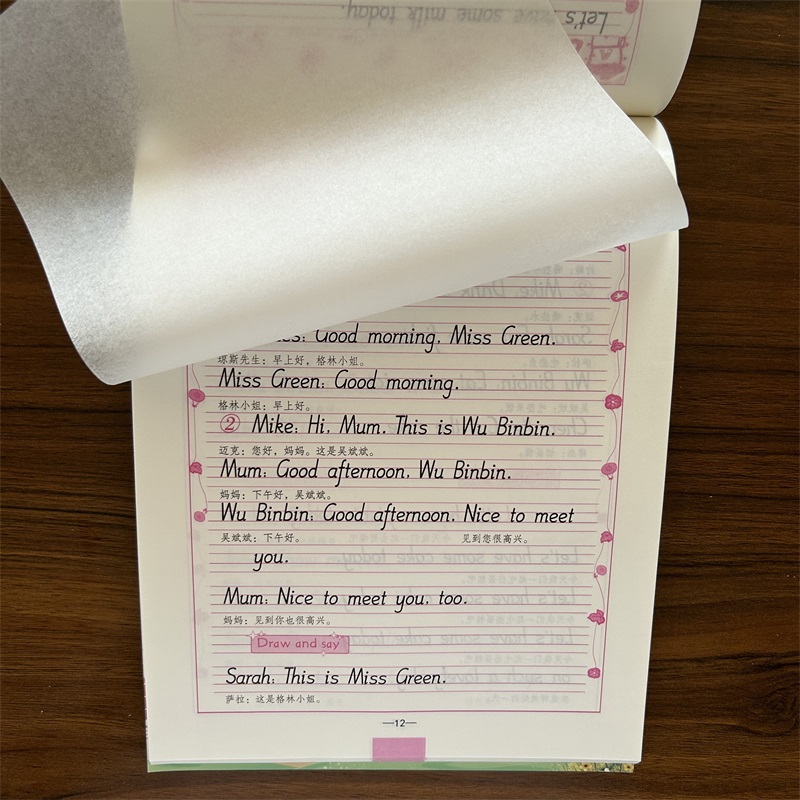 Let's have some milk today.
Good morning, Miss Green.
琼斯先生：早上好，格林小姐。
Miss Green: Good morning.
格林小姐：早上好。
② Mike: Hi, Mum. This is Wu Binbin.
迈克：您好，妈妈。这是吴斌斌。
Mum: Good afternoon, Wu Binbin.
妈妈：下午好，吴斌斌。
Wu Binbin: Good afternoon. Nice to meet
吴斌斌：下午好。 见到您很高兴。
you.
Mum: Nice to meet you, too.
妈妈：见到你也很高兴。
Draw and say
Sarah: This is Miss Green.
萨拉：这是格林小姐。
—12—